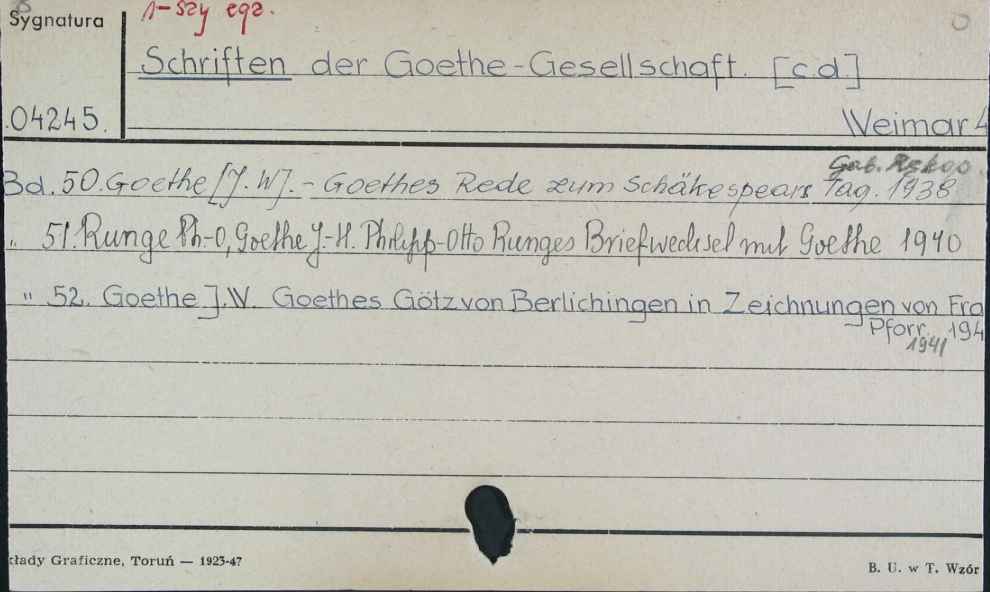 Sygnatura
1-szy egz.
Schriften der Goethe-Gesellschaft. [c.d.]
04245.
Weimar 4
Gab. Rękop.
Bd. 50. Goethe [J. W]. - Goethes Rede zum Schäkespears Tag. 1938
" 51. Runge Ph-O, Goethe J.-H. Philipp-Otto Runges Briefwechsel mit Goethe 1940
" 52. Goethe J.W. Goethes Götz von Berlichingen in Zeichnungen von Fra
Pforr. 194
1941
kłady Graficzne, Toruń — 1923-47
B. U. w T. Wzór